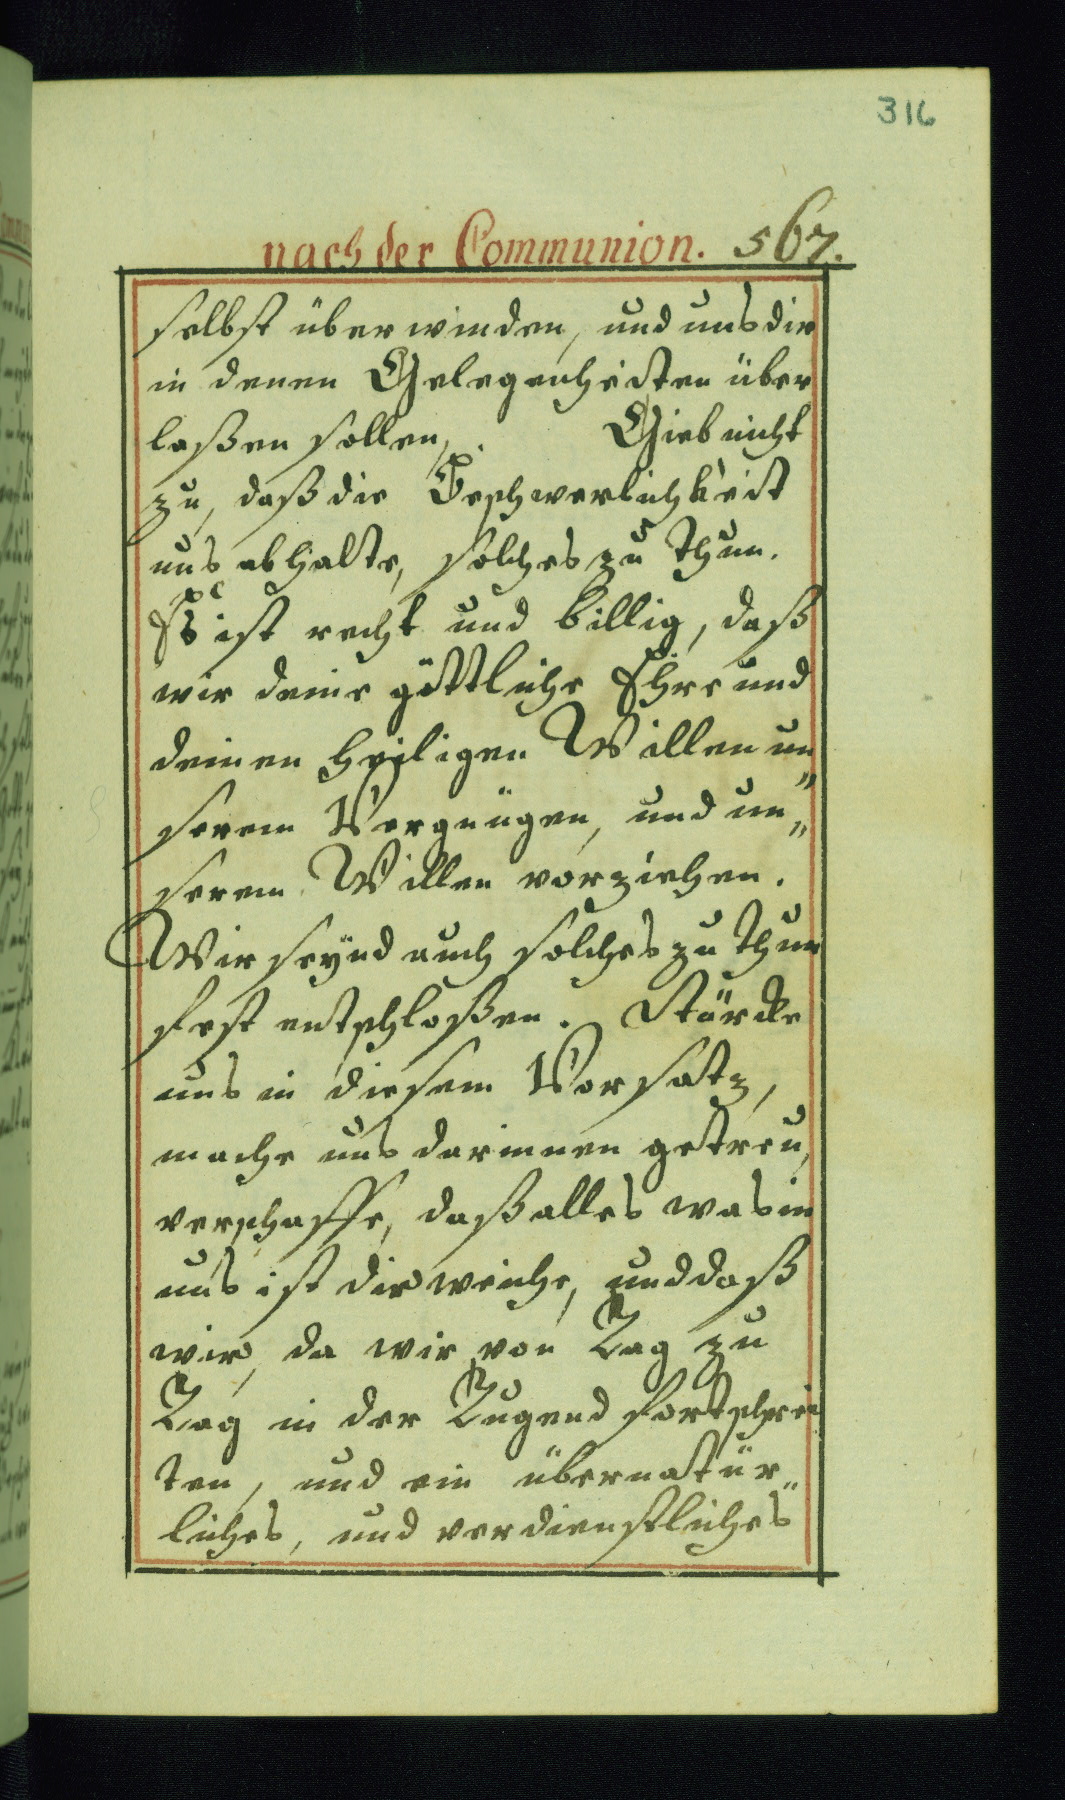 316
nach der Communion. 567.
selbst überwinden, und uns dir
in denen Gelegenheiten über
laßen sollen,. Gieb nicht
zu, daß die Beschwerlichkeit
uns abhalte, solches zu thun.
Es ist recht und billig, daß
wir deine göttliche Ehre und
deinen heiligen Willen un„
serem Vergnügen, und un„
serem Willen vorziehen.
Wir seÿnd auch solches zu thun
fest entschloßen. Stärcke
uns in diesem Vorsatz,
mache uns darinnen getreu,
verschaffe, daß alles was in
uns ist dir weiche, und daß
wir, da wir von Tag zu
Tag in der Tugend fortschrei
ten, und ein übernatür„
liches, und verdienstliches